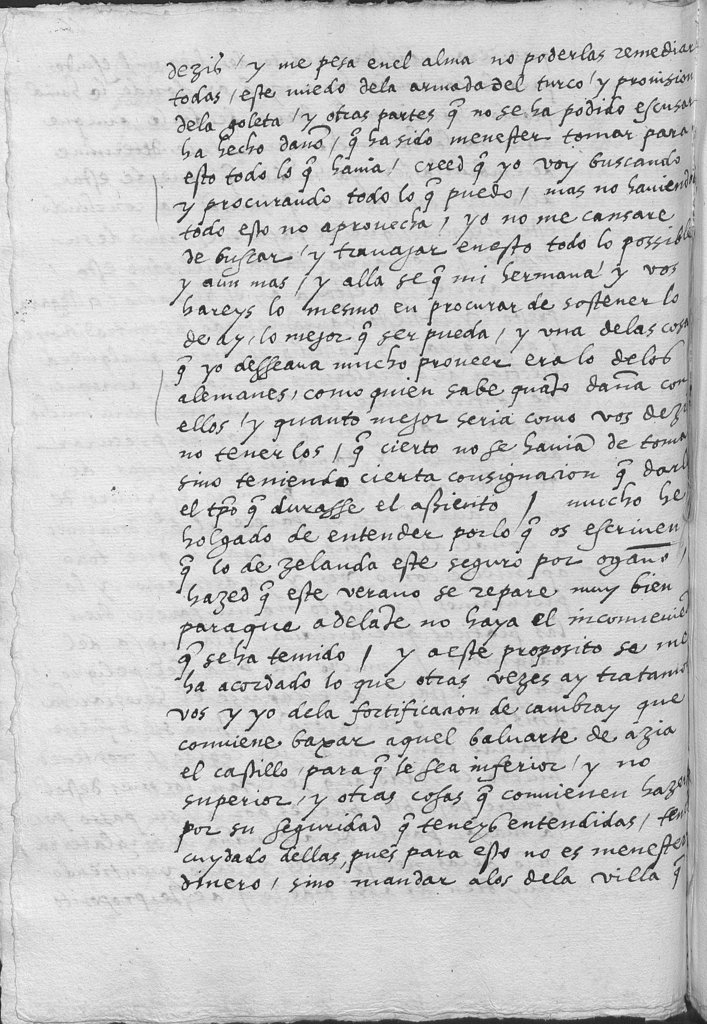 dezis / y me pesa enel alma no poderlas remediar
todas / este miedo dela armada del turco / y prouision
dela goleta / y otras partes q̃ no se ha podido escusar
ha hecho daño / q̃ ha sido menester tomar para
esto todo lo q̃ hauia / creed q̃ yo voy buscando
y procurando todo lo q̃ puedo / mas no hauiendo
todo esto no aprouecha / yo no me cansare
de buscar / y trauajar enesto todo lo possible
y aun mas / y alla se q̃ mi hermana / y vos
hareys lo mesmo en procurar de sostener lo
de ay / lo mejor q̃ ser pueda / y vna delas cosas
q̃ yo desseara mucho proueer era lo delos
alemanes / como quien sabe quãto daña con
ellos / y quanto mejor seria como vos dezis
no tener los / q̃ cierto no se hauiã de tomar
sino teniendo cierta consignacion q̃
el tp̃o q̃ durasse el assiento / mucho he
holgado de entender por lo q̃ os escriuen
q̃ lo de zelanda este seguro por ogaño /
hazed q̃ este verano se repare muy bien
paraque adelãte no haya el inconueniente
q̃ se ha temido / y aeste proposito se me
ha acordado lo que otras vezes ay tratamos
vos y yo dela fortificacion de cambray que
conuiene baxar aquel baluarte de azia
el castillo / para q̃ le sea inferior / y no
superior / y otras cosas q̃ conuienen hazer
por su seguridad q̃ teneys entendidas /
cuydado dellas, pues para esto no es menester
dinero / sino mandar alos dela villa q̃